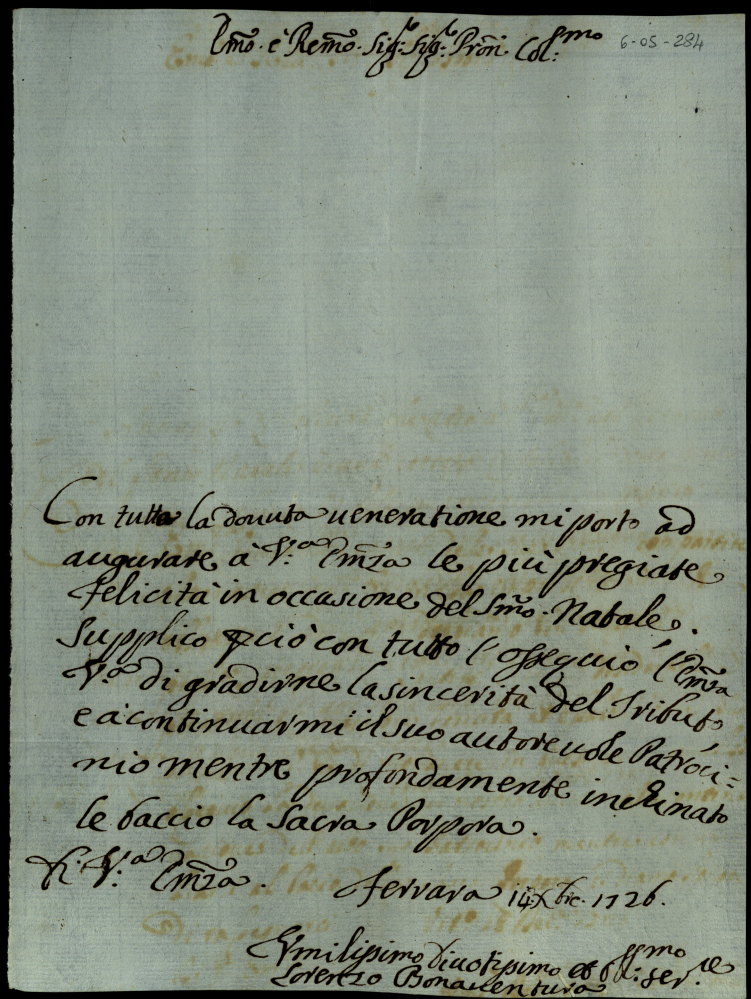 Em̃o. è Rem̃o. Sig:re Sig:re Pron̄. Col:mo
6-05-284
Con tutta la douuta ueneratione mi porto ad
augurare à V.a Em̃za le più pregiate
felicità in occasione del Sm̃o. Natale.
Supplico ꝑciò con tutto l'ossequio l'Em̃za
V.a di gradirne la sincerità del Tributo
e à continuarmi il suo autoreuole Patroci=
nio mentre profondamente inchinato
le baccio la Sacra Porpora.
Di V.a Em̃za.
Ferrara 14 Xbre. 1726.
Vmilissimo Diuotissimo et Obl:mo ser.re
Lorenzo Bonauentura